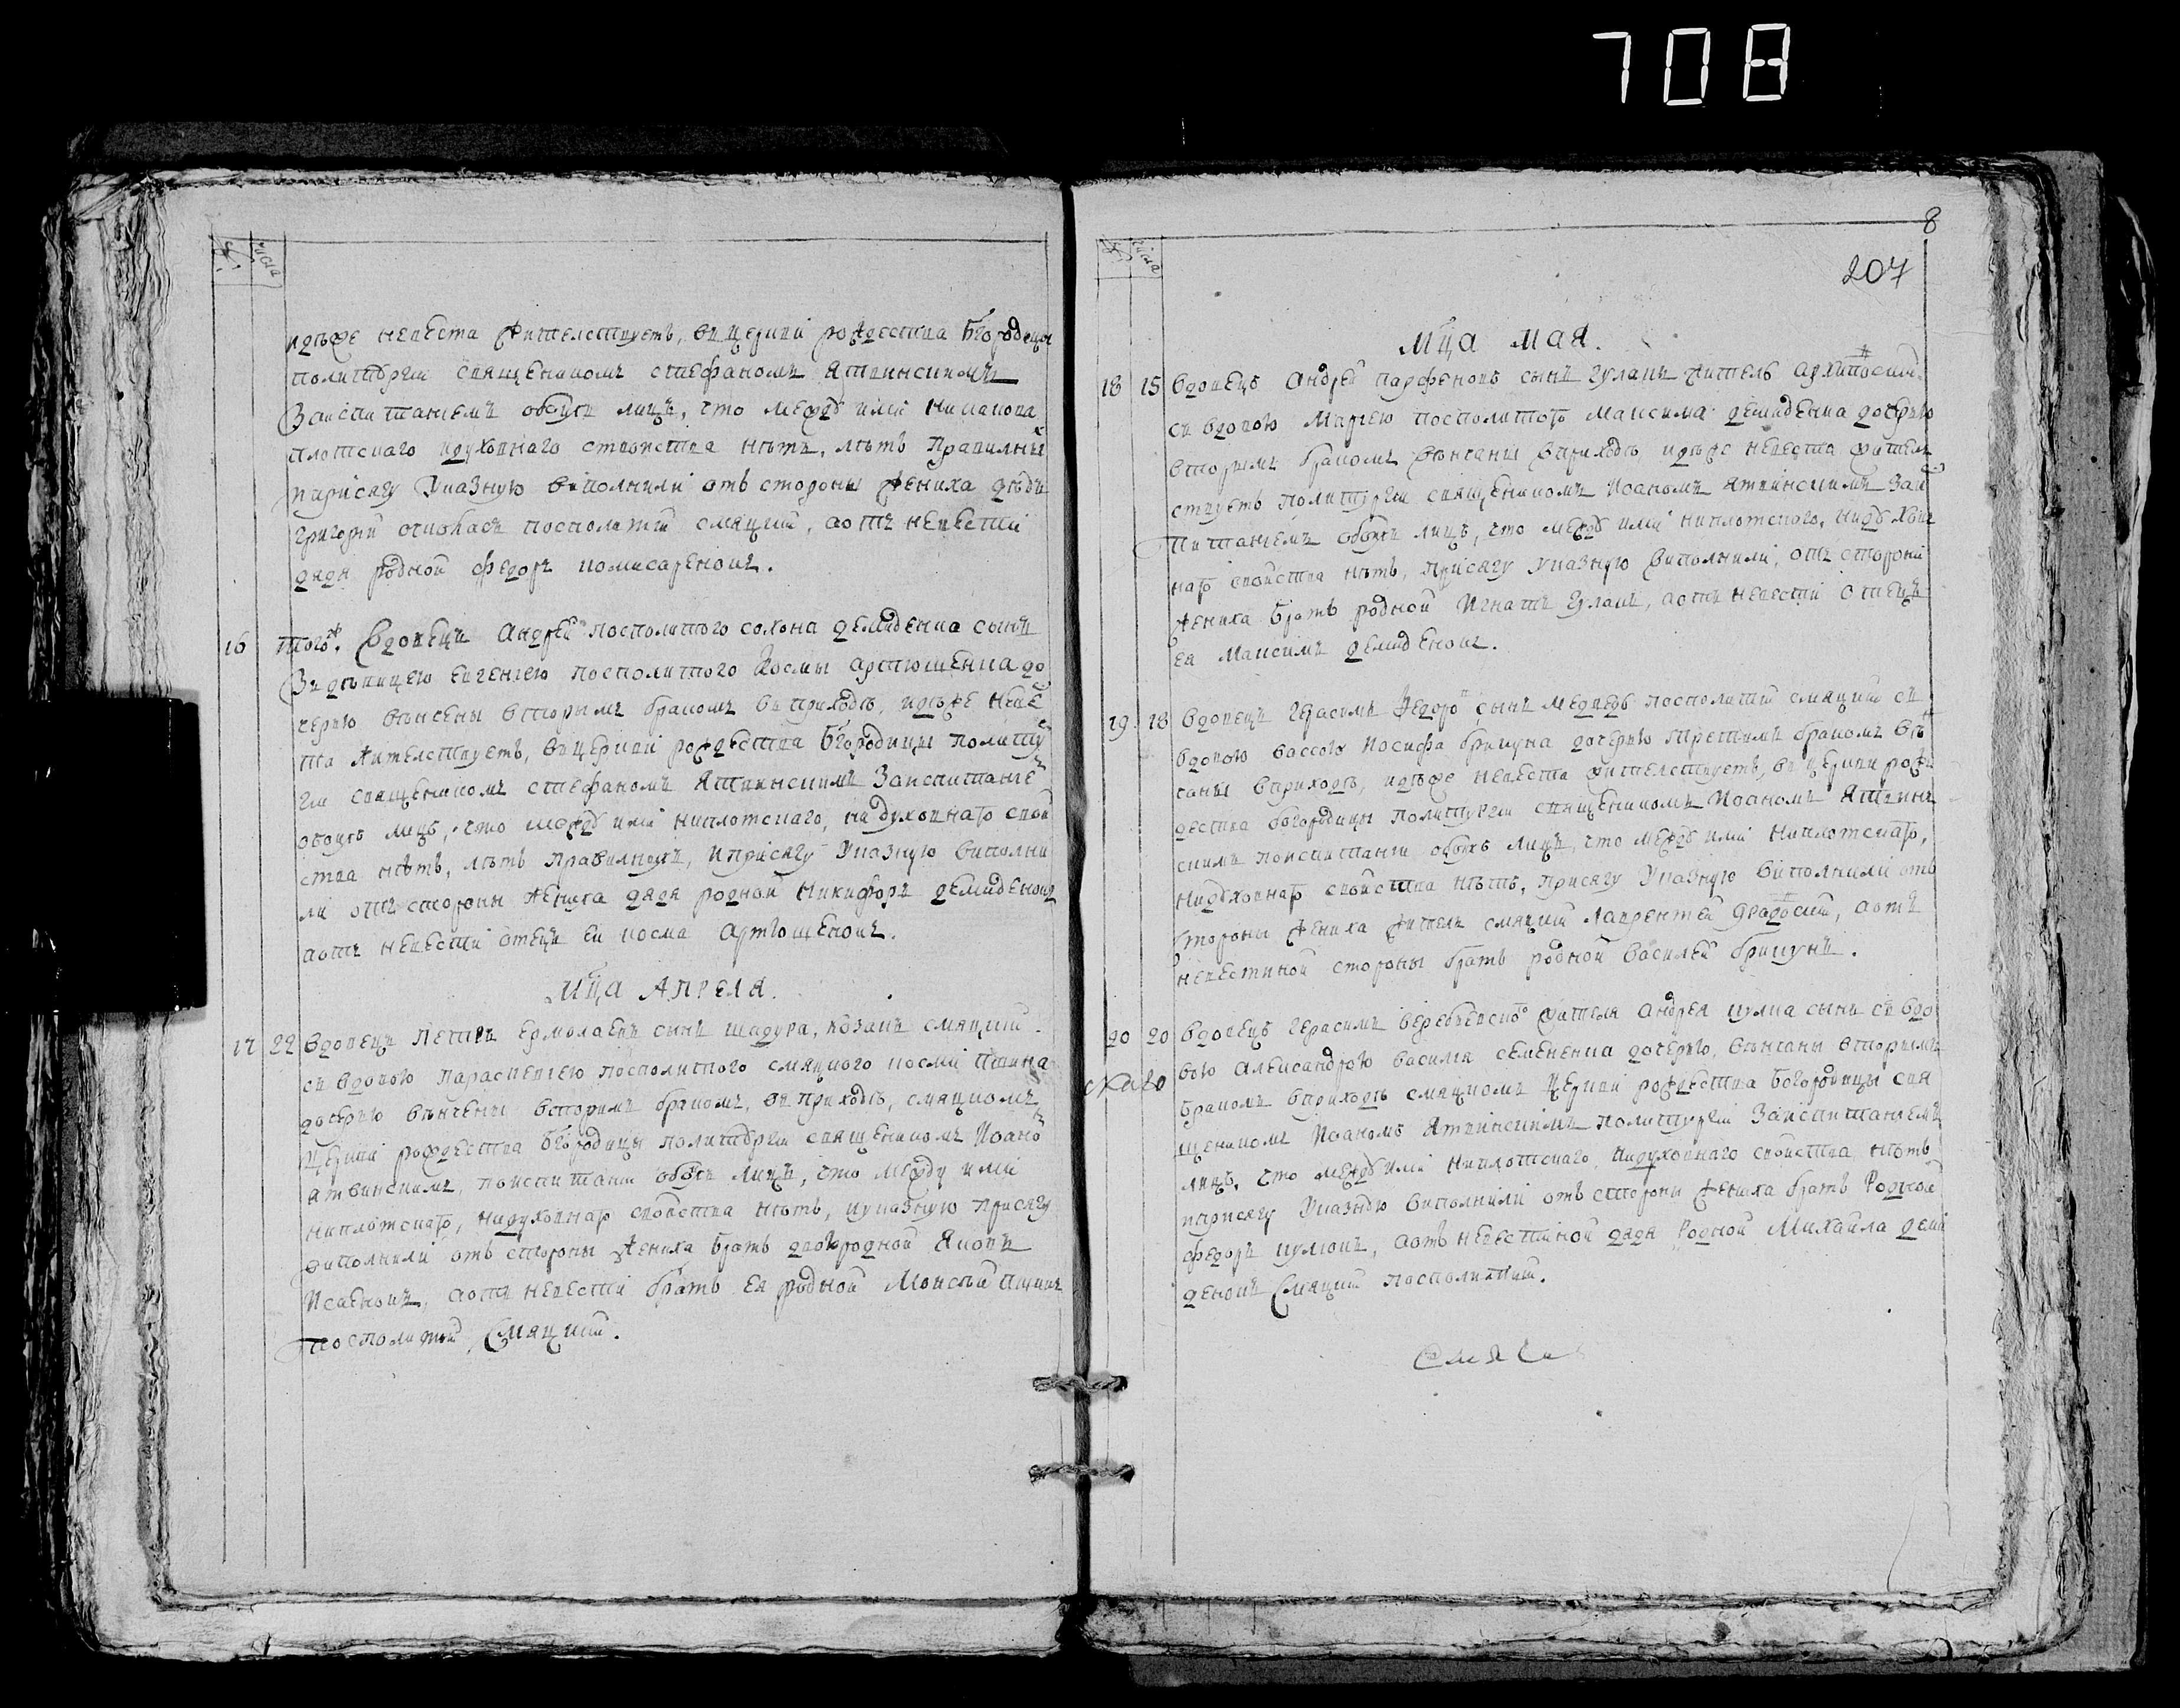 708
№.
числа
идѣже невѣста жителствуетъ, въ церкви рождества Бгородицы
политургіи священикомъ Стефаномъ Ятвинскимъ
Заиспитаніемъ обоихъ лицъ, что между ими никакова
плотскаго идуховнаго свойства нѣтъ, лѣтъ правилных
иприсягу Указную виполнили отъ стороны жениха дядь
григорій посполитій смяцкій, аотъ невѣсти
дядя родной федоръ комисаренокъ.
16 тогож. Вдовецъ Андрей посполитого солона демиденка сынъ
Здѣвицею евгеніею посполитого Космы артюшенка до
черью вѣнчены вторымъ бракомъ въ приходѣ, идѣже невѣ
ста жителствуетъ, въ церкви рождества Богородицы политур
гіи священикомъ стефаномъ Ятвинскимъ Заиспитаніем
обоихъ лицъ, что между ими ниплотскаго, ни духовнаго свой
ства нѣтъ, лѣтъ правилныхъ, иприсягу Указную виполни
ли отъ стороны жениха дядя родной Никифоръ демиденокъ
аотъ невѣсти отецъ ея косма Артюшенокъ.
Мца Апреля.
17 22 Вдовецъ Петръ Ермолаевъ сынъ шадура, козакъ смяцкій.
съ вдовою Параскевіею посполитого смяцкого косми
дочерью вѣнчены вторимъ бракомъ, въ приходѣ, смяцкомъ
Церкви рождества Богородицы политургіи священикомъ Иоаном
ятвинскимъ, поиспитаніи обоихъ лицъ, что между ими
ниплотскаго, нидуховнаго свойства нѣтъ, иуказную присягу
виполнили отъ стороны жениха братъ двоюродной Яковъ
Исаенокъ, аотъ невѣсти братъ ея родной Моисѣй
посполитой, Смяцкій.
8
207
№.
числа
Мца мая.
18 15 Вдовецъ Андрей Парфеновъ сынъ гулакъ житель
съ вдовою Маріею посполитого Максима демиденка дочерью
вторымъ бракомъ вѣнчаны вприходѣ идѣже невѣста жител
ствуетъ политургіи священикомъ Иоаномъ Ятвинскимъ Заис
питаніемъ обоихъ лицъ, что между ими ниплотскаго, нидухов
наго свойства нѣтъ, присягу Указную виполнили, отъ стороні
жениха братъ родной Игнатъ гулакъ, аотъ невести отецъ
ея Максимъ демиденокъ.
19. 18 Вдовецъ герасимъ Федоров сынъ медведь посполитій смяцкій съ
вдовою вассою Иосифа брикуна дочерью третимъ бракомъ вѣн
чаны вприходѣ, идѣже невеста жителствуетъ, въ церкви рож
дества богородицы политургіи священикомъ Иоаномъ Ятвин
скимъ поиспитаніи обоихъ лицъ, что между ими ниплотскаго,
нидуховнаго свойства нѣтъ, присягу Указную виполнили отъ
стороны жениха житель смяцкій лаврентей, аотъ
невестиной стороны братъ родной Василей брикунъ.
20 20 Вдовецъ герасимъ жителя Андрея кулка сынъ съ вдо
вою Александрою василия семененка дочерью, вѣнчаны вторымъ
бракомъ вприходѣ смяцкомъ Церкви рождества Богородицы свя
щеникомъ Иоаномъ Ятвинскимъ политургіи Заиспитаніемъ
лицъ, что между ими ниплотскаго, нидуховнаго свойства нѣтъ
иприсягу Указную виполнили отъ стороны жениха братъ Родной
федоръ кулюкъ, аотъ невестиной дядя Родной Михайла деми
денокъ Смяцкій посполитій.